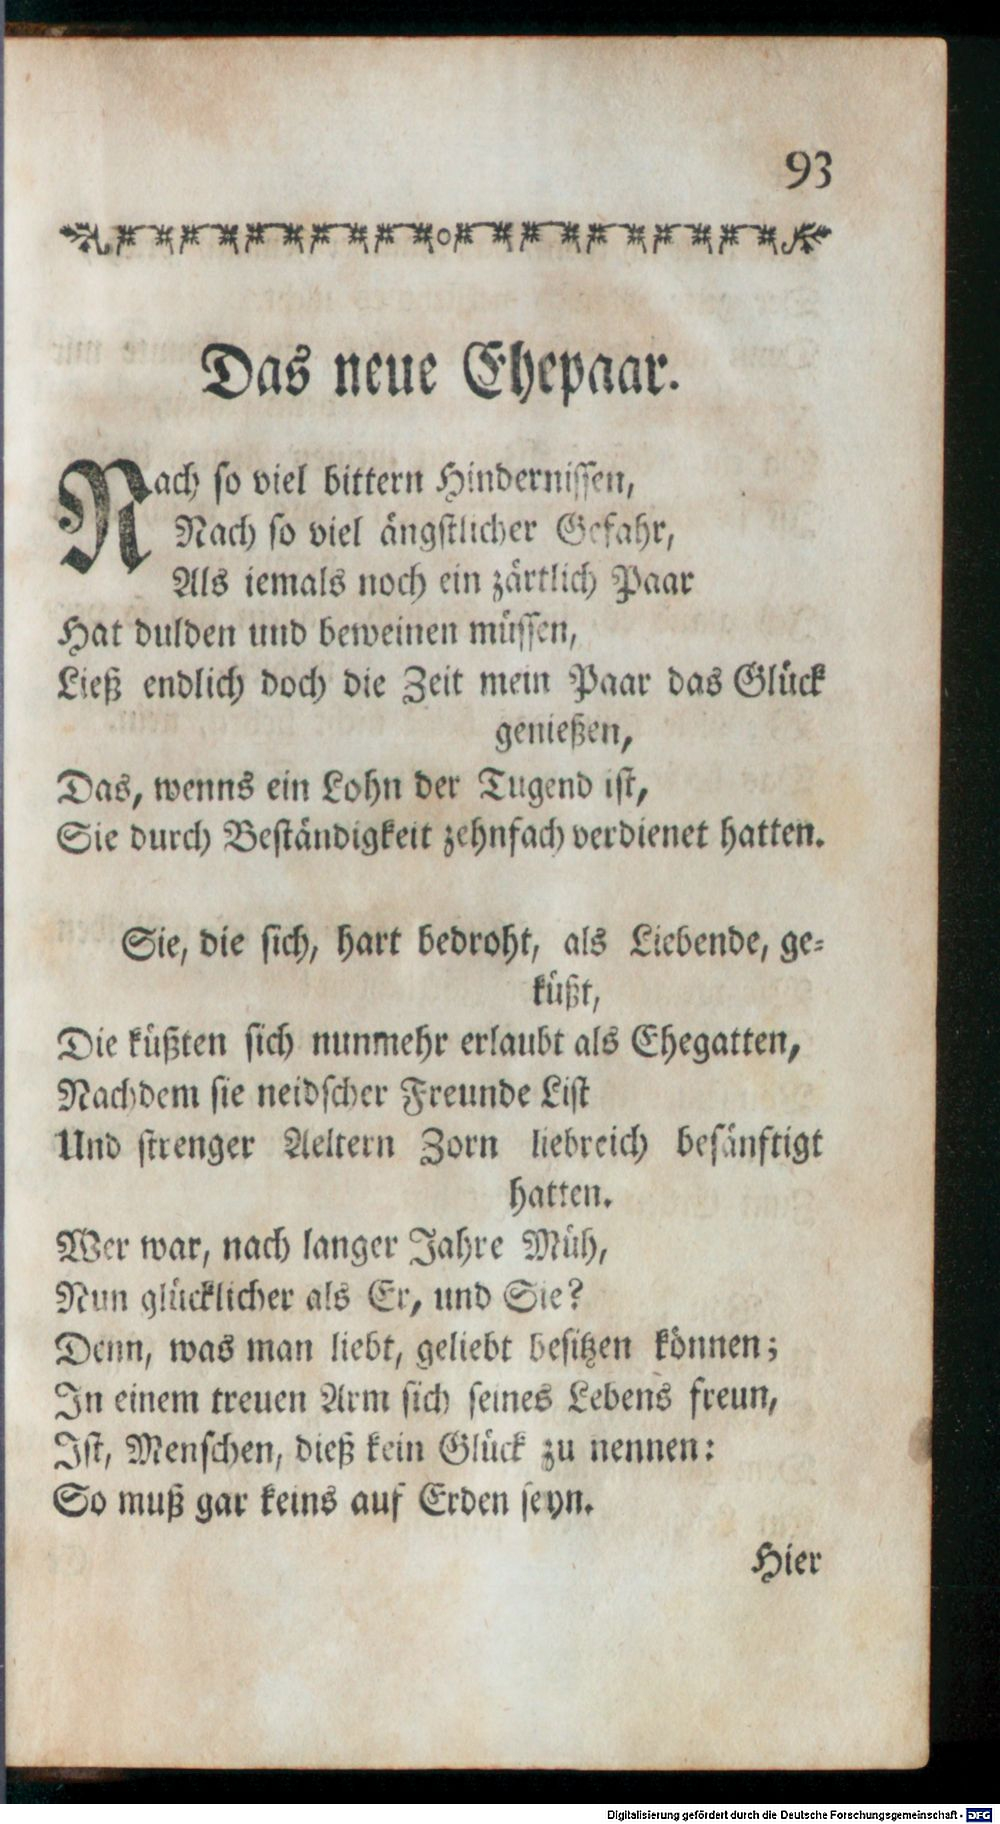 93
Das neue Ehepaar.
Nach so viel bittern Hindernissen,
Nach so viel ängstlicher Gefahr,
Als iemals noch ein zärtlich Paar
Hat dulden und beweinen müssen,
Ließ endlich doch die Zeit mein Paar das Glück
genießen,
Das, wenns ein Lohn der Tugend ist,
Sie durch Beständigkeit zehnfach verdienet hatten.
Sie, die sich, hart bedroht, als Liebende, ge-
küßt,
Die küßten sich nunmehr erlaubt als Ehegatten,
Nachdem sie neidscher Freunde List
Und strenger Aeltern Zorn liebreich besänftigt
hatten.
Wer war, nach langer Jahre Müh,
Nun glücklicher als Er, und Sie?
Denn, was man liebt, geliebt besitzen können;
In einem treuen Arm sich seines Lebens freun,
Ist, Menschen, dieß kein Glück zu nennen:
So muß gar keins auf Erden seyn.
Hier
Digitalisierung gefördert durch die Deutsche Forschungsgemeinschaft - DFG